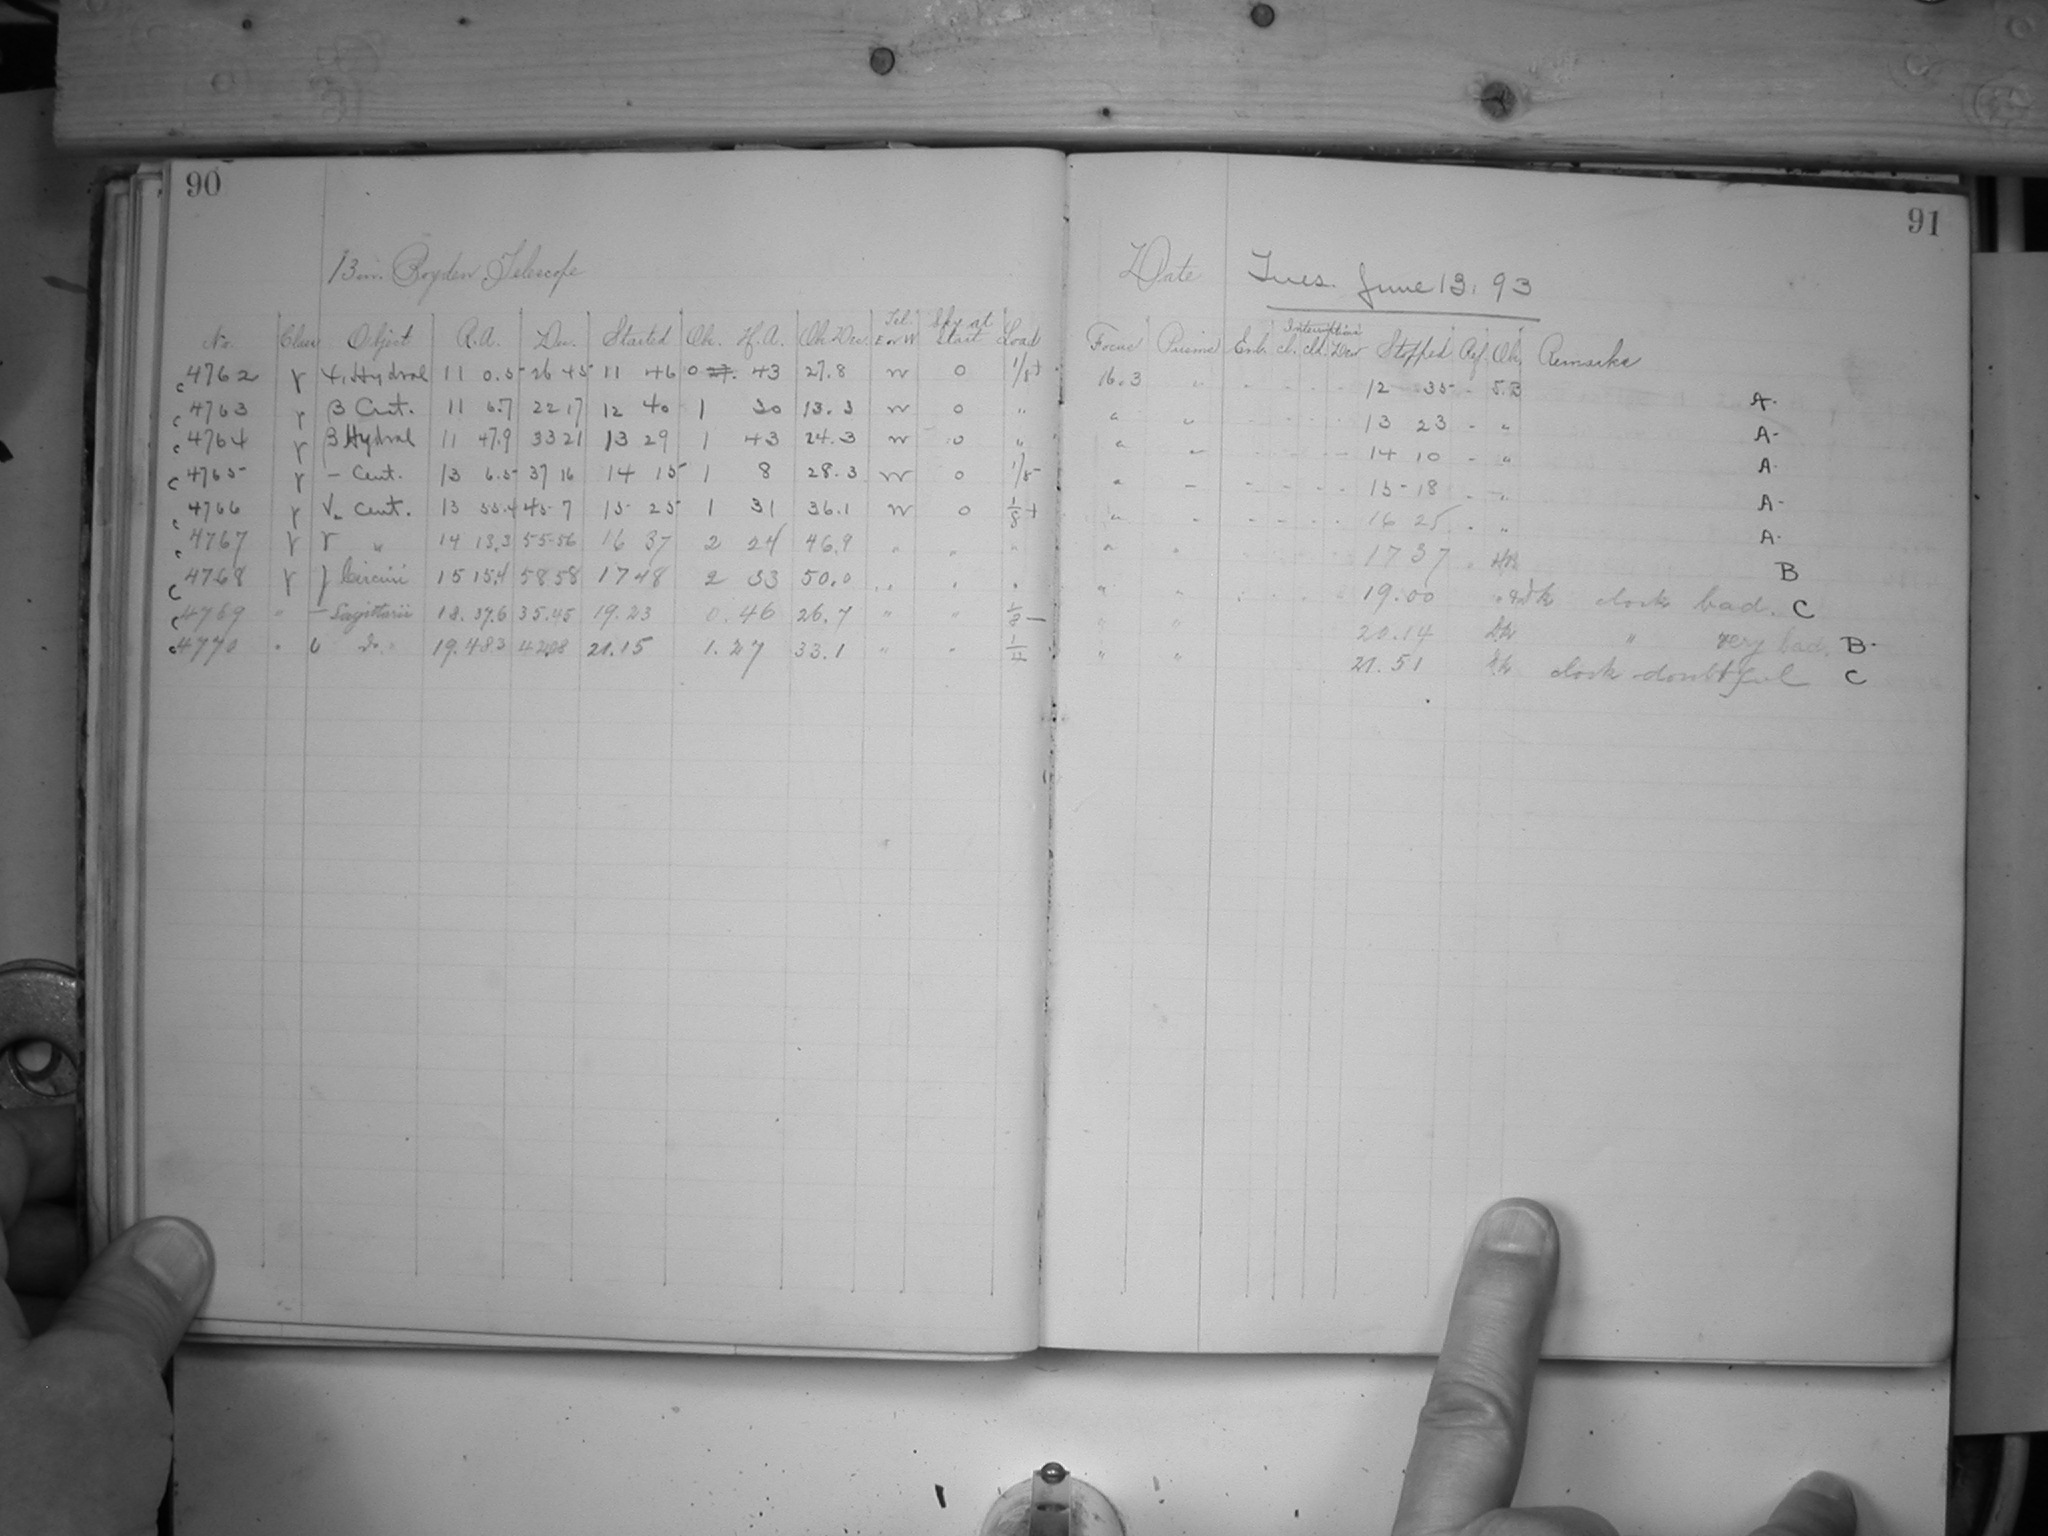 90
13 in. Boyden Telescope
No. Class Object R.A. Dec. Started Ob. H.A. Ob. Dec. Tel. E or W Sky at Start Load
c 4762 γ χ, Hydrae 11 0.5 26 45 11 46 0 43 27.8 W 0 1/8+
c 4763 γ β Crt. 11 6.7 22 17 12 40 1 30 13.3 W 0 "
c 4764 γ β Hydrae 11 47.9 33 21 13 29 1 43 24.3 W 0 "
c 4765 γ — Cent. 13 6.5 37 16 14 15 1 8 28.3 W 0 1/8-
c 4766 γ Cent. 13 55.4 45 7 15 25 1 31 36.1 W 0 1/8 +
c 4767 γ γ " 14 13.3 55 56 16 37 2 24 46.9 " " "
c 4768 γ Circini 15 15.4 58 58 17 48 2 33 50.0 " " "
c 4769 " — Sagittarii 18. 37.6 35.45 19.23 0.46 26.7 " " 1/8 —
c 4770 " Do. 19.48.3 21.15 1.27 33.1 " " 1/4
91
Date Tues. June 13. 93
Focus Prisms Enl. Interruption cl. cld. Dew Stopped Ref. Ob. Remarks
16.3 " - - - - 12 35 - S.B A-
" " - - - - 13 23 - " A-
" " - - - - 14 10 - " A-
" " - - - - 15 18 - " A-
" " - - - - 16 25 - " A-
" " 17 37 B
" " 19.00 clock bad. C
" " 20.14 " very bad. B-
" " 21.51 clock doubtful C